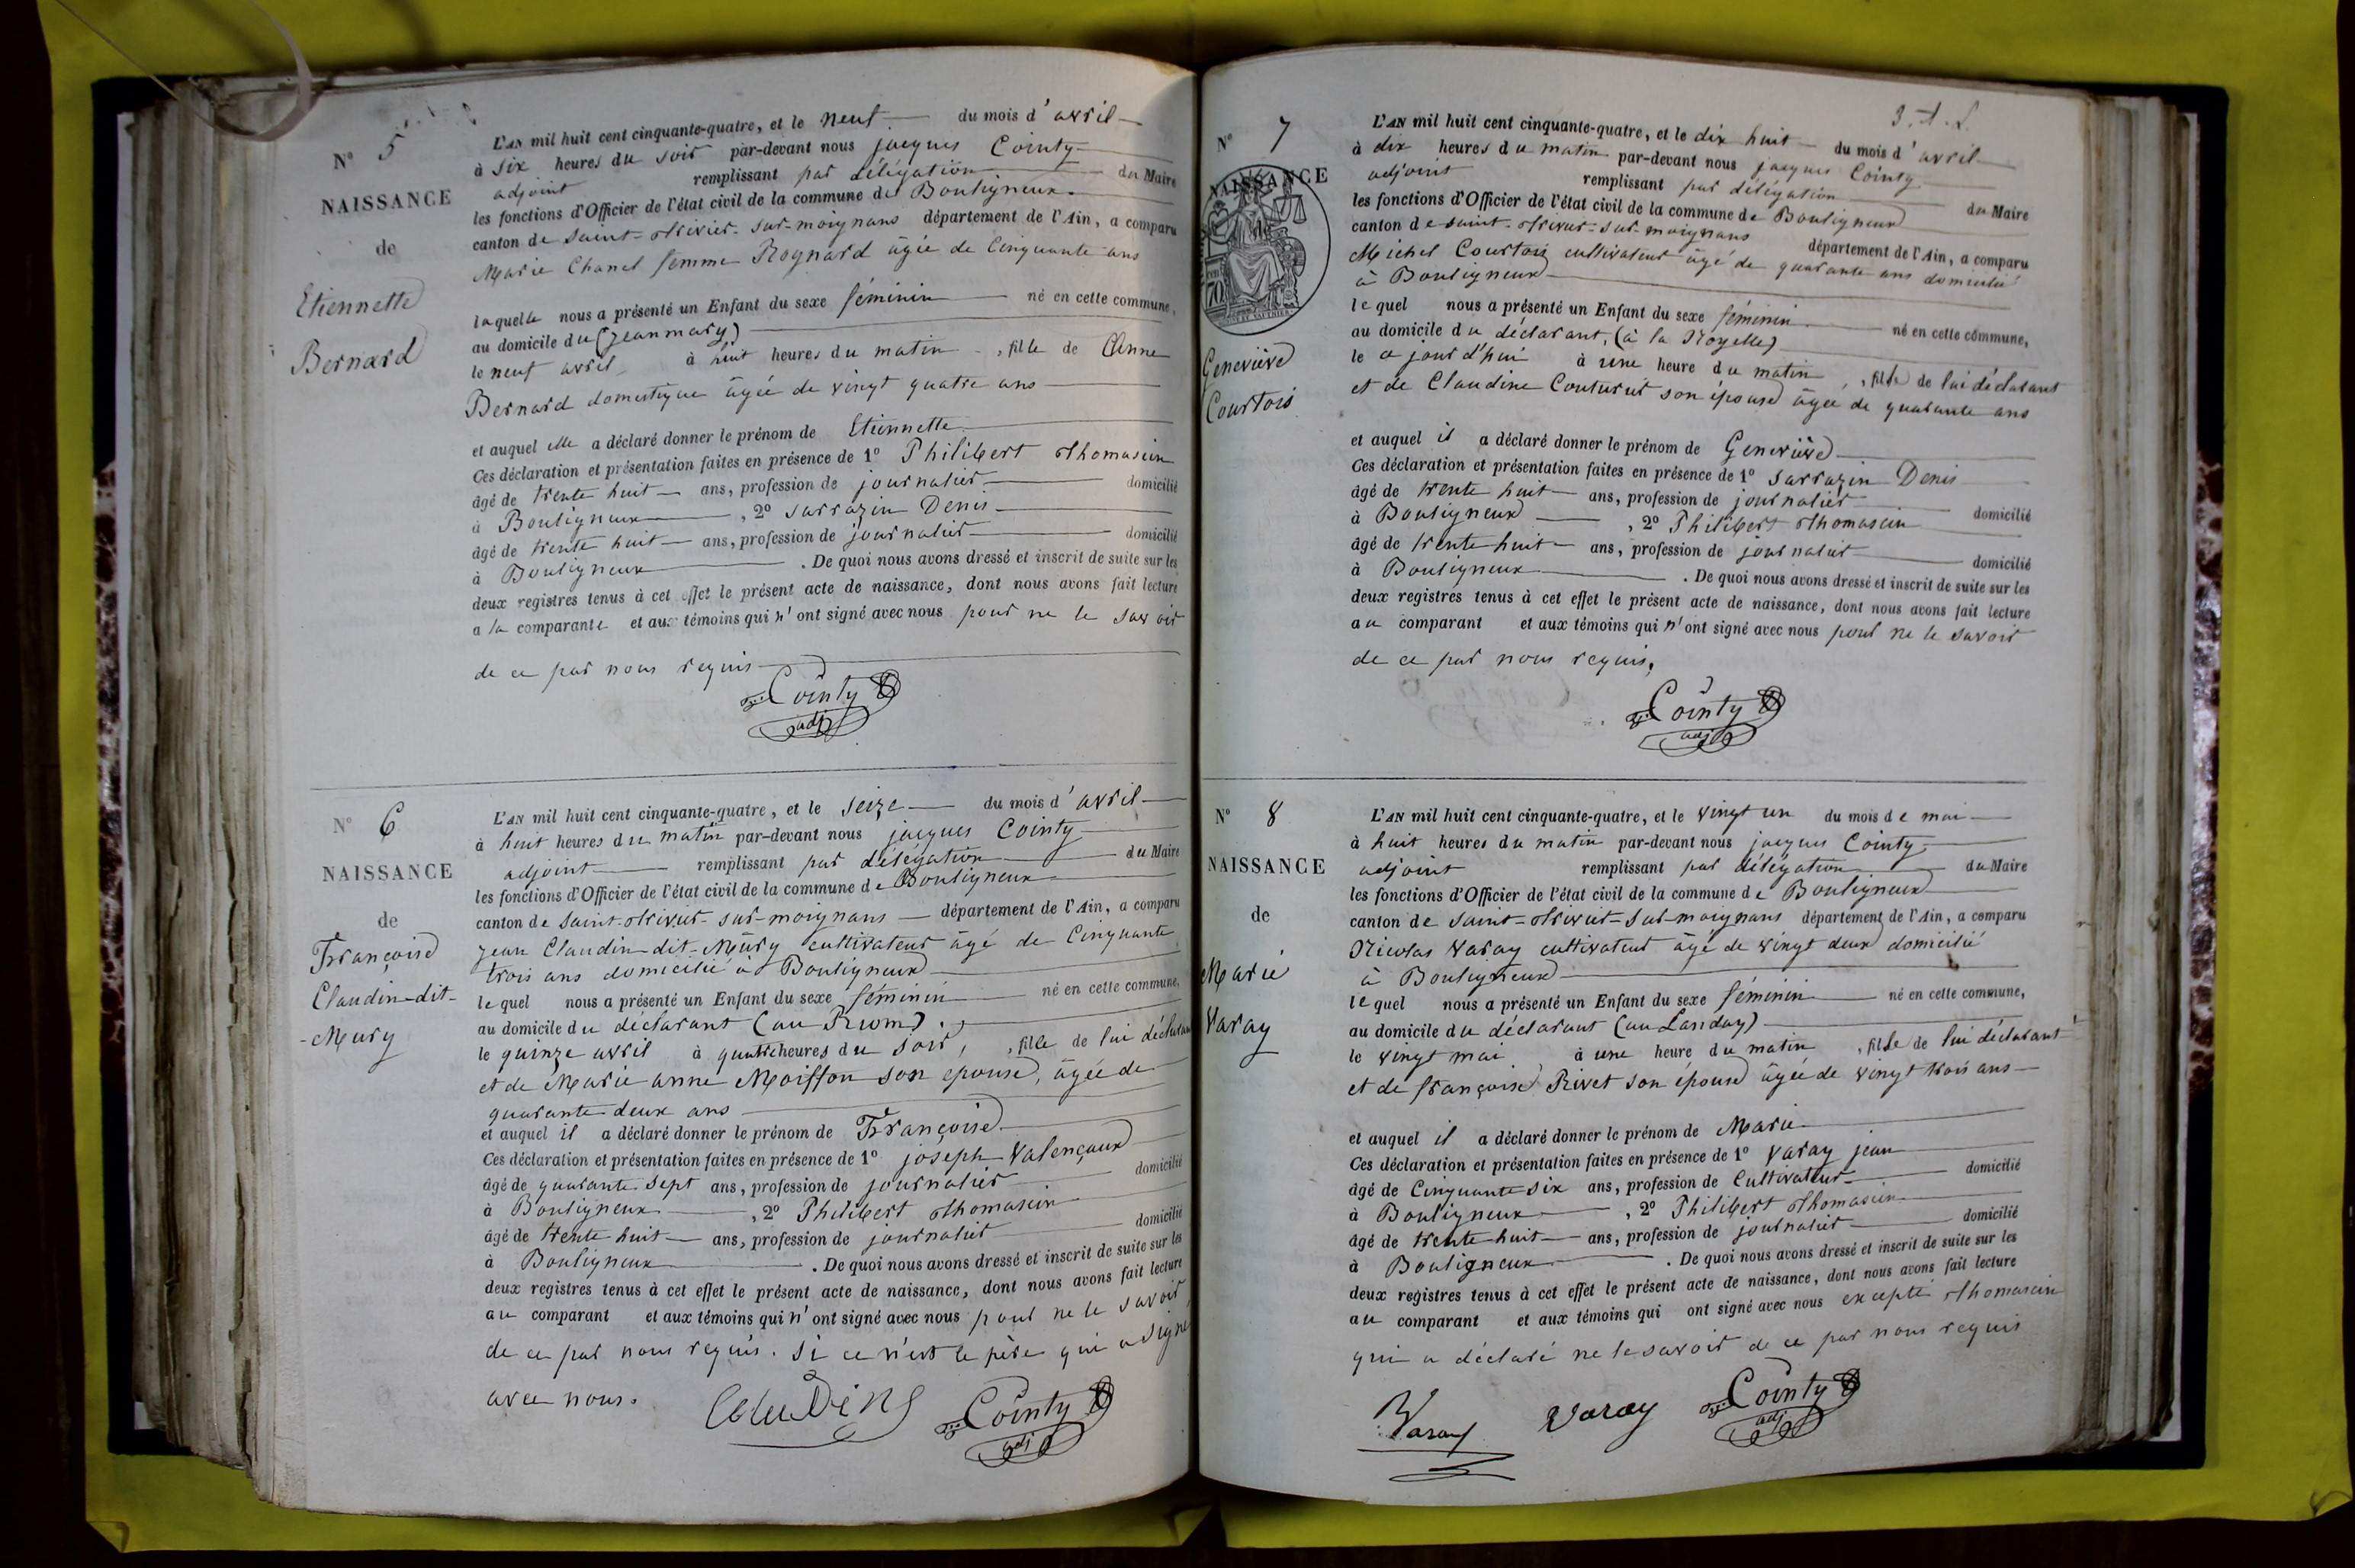 N° 5
NAISSANCE
de
Etiennette
Bernard
L'AN mil huit cent cinquante-quatre, et le neuf du mois d'avril
à six heures du soir par-devant nous jacques Cointy
adjoint remplissant par délégation du Maire
les fonctions d'Officier de l'état civil de la commune de Bouligneux
canton de saint-trivier-sur-moignans département de l'Ain, a comparu
Marie Chanel femme Rognard âgée de Cinquante ans
laquelle nous a présenté un Enfant du sexe féminin né en cette commune,
au domicile du (jeanmary)
le neuf avril à huit heures du matin, fille de Anne
Bernard domestique âgée de vingt quatre ans
et auquel elle a déclaré donner le prénom de Etiennette
Ces déclaration et présentation faites en présence de 1° Philibert thomassin
âgé de trente huit ans, profession de journalier domicilié
à Bouligneux, 2° sarrazin Denis
âgé de trente huit ans, profession de journalier domicilié
à Bouligneux. De quoi nous avons dressé et inscrit de suite sur les
deux registres tenus à cet effet le présent acte de naissance, dont nous avons fait lecture
a la comparante et aux témoins qui n'ont signé avec nous pour ne le savoir
de ce par nous requis
Cointy
adj
N° 6
NAISSANCE
de
Françoise
Claudin-dit-
-Mury
L'AN mil huit cent cinquante-quatre, et le seize du mois d'avril
à huit heures du matin par-devant nous jacques Cointy
adjoint remplissant par délégation du Maire
les fonctions d'Officier de l'état civil de la commune de Bouligneux
canton de saint-trivier-sur-moignans département de l'Ain, a comparu
jean Claudin-dit-Mury cultivateur âgé de Cinquante
trois ans domicilié à Bouligneux
lequel nous a présenté un Enfant du sexe féminin né en cette commune,
au domicile du déclarant (au Riom).
le quinze avril à quatre heures du soir, fille de lui déclarant
et de Marie anne Moisson son epouse, âgée de
quarante deux ans
et auquel il a déclaré donner le prénom de Françoise
Ces déclaration et présentation faites en présence de 1° joseph Valençaux
âgé de quarante sept ans, profession de journalier domicilié
à Bouligneux, 2° Philibert thomasin
âgé de trente huit ans, profession de journalier domicilié
à Bouligneux. De quoi nous avons dressé et inscrit de suite sur les
deux registres tenus à cet effet le présent acte de naissance, dont nous avons fait lecture
au comparant et aux témoins qui n'ont signé avec nous pour ne le savoir
de ce par nous requis. si ce n'est le père qui a signé
avec nous.
Claudin Cointy
adj
3.
N° 7
NAISSANCE
Geneviève
Courtois
L'AN mil huit cent cinquante-quatre, et le dix huit du mois d'avril
à dix heures du matin par-devant nous jacques Cointy
adjoint remplissant par délégation du Maire
les fonctions d'Officier de l'état civil de la commune de Bouligneux
canton de saint-trivier-sur-moignans département de l'Ain, a comparu
Michel Courtois cultivateur âgé de quarante ans domicilié
à Bouligneux
lequel nous a présenté un Enfant du sexe féminin né en cette commune,
au domicile du déclarant, (à la Noyelle)
le ce jourd'hui à une heure du matin, fille de lui déclarant
et de Claudine Couturier son épouse âgée de quarante ans
et auquel il a déclaré donner le prénom de Geneviève
Ces déclaration et présentation faites en présence de 1° sarrazin Denis
âgé de trente huit ans, profession de journalier domicilié
à Bouligneux, 2° Philibert thomassin
âgé de trente huit ans, profession de journalier domicilié
à Bouligneux. De quoi nous avons dressé et inscrit de suite sur les
deux registres tenus à cet effet le présent acte de naissance, dont nous avons fait lecture
au comparant et aux témoins qui n'ont signé avec nous pour ne le savoir
de ce par nous requis,
Cointy
adj
N° 8
NAISSANCE
de
Marie
Varay
L'AN mil huit cent cinquante-quatre, et le vingt un du mois de mai
à huit heures du matin par-devant nous jacques Cointy
adjoint remplissant par délégation du Maire
les fonctions d'Officier de l'état civil de la commune de Bouligneux
canton de saint-trivier-sur-moignans département de l'Ain, a comparu
Nicolas Varay cultivateur âgé de vingt deux domicilié
à Bouligneux
lequel nous a présenté un Enfant du sexe féminin né en cette commune,
au domicile du déclarant (au Landay)
le vingt mai à une heure du matin, fille de lui déclarant
et de françoise Rivet son épouse âgée de vingt trois ans
et auquel il a déclaré donner le prénom de Marie
Ces déclaration et présentation faites en présence de 1° Varay jean
âgé de Cinquante six ans, profession de Cultivateur domicilié
à Bouligneux, 2° Philibert thomasin
âgé de trente huit ans, profession de journalier domicilié
à Bouligneux. De quoi nous avons dressé et inscrit de suite sur les
deux registres tenus à cet effet le présent acte de naissance, dont nous avons fait lecture
au comparant et aux témoins qui ont signé avec nous excepté thomassin
qui a déclaré ne le savoir de ce par nous requis
Varay Varay Cointy
adj